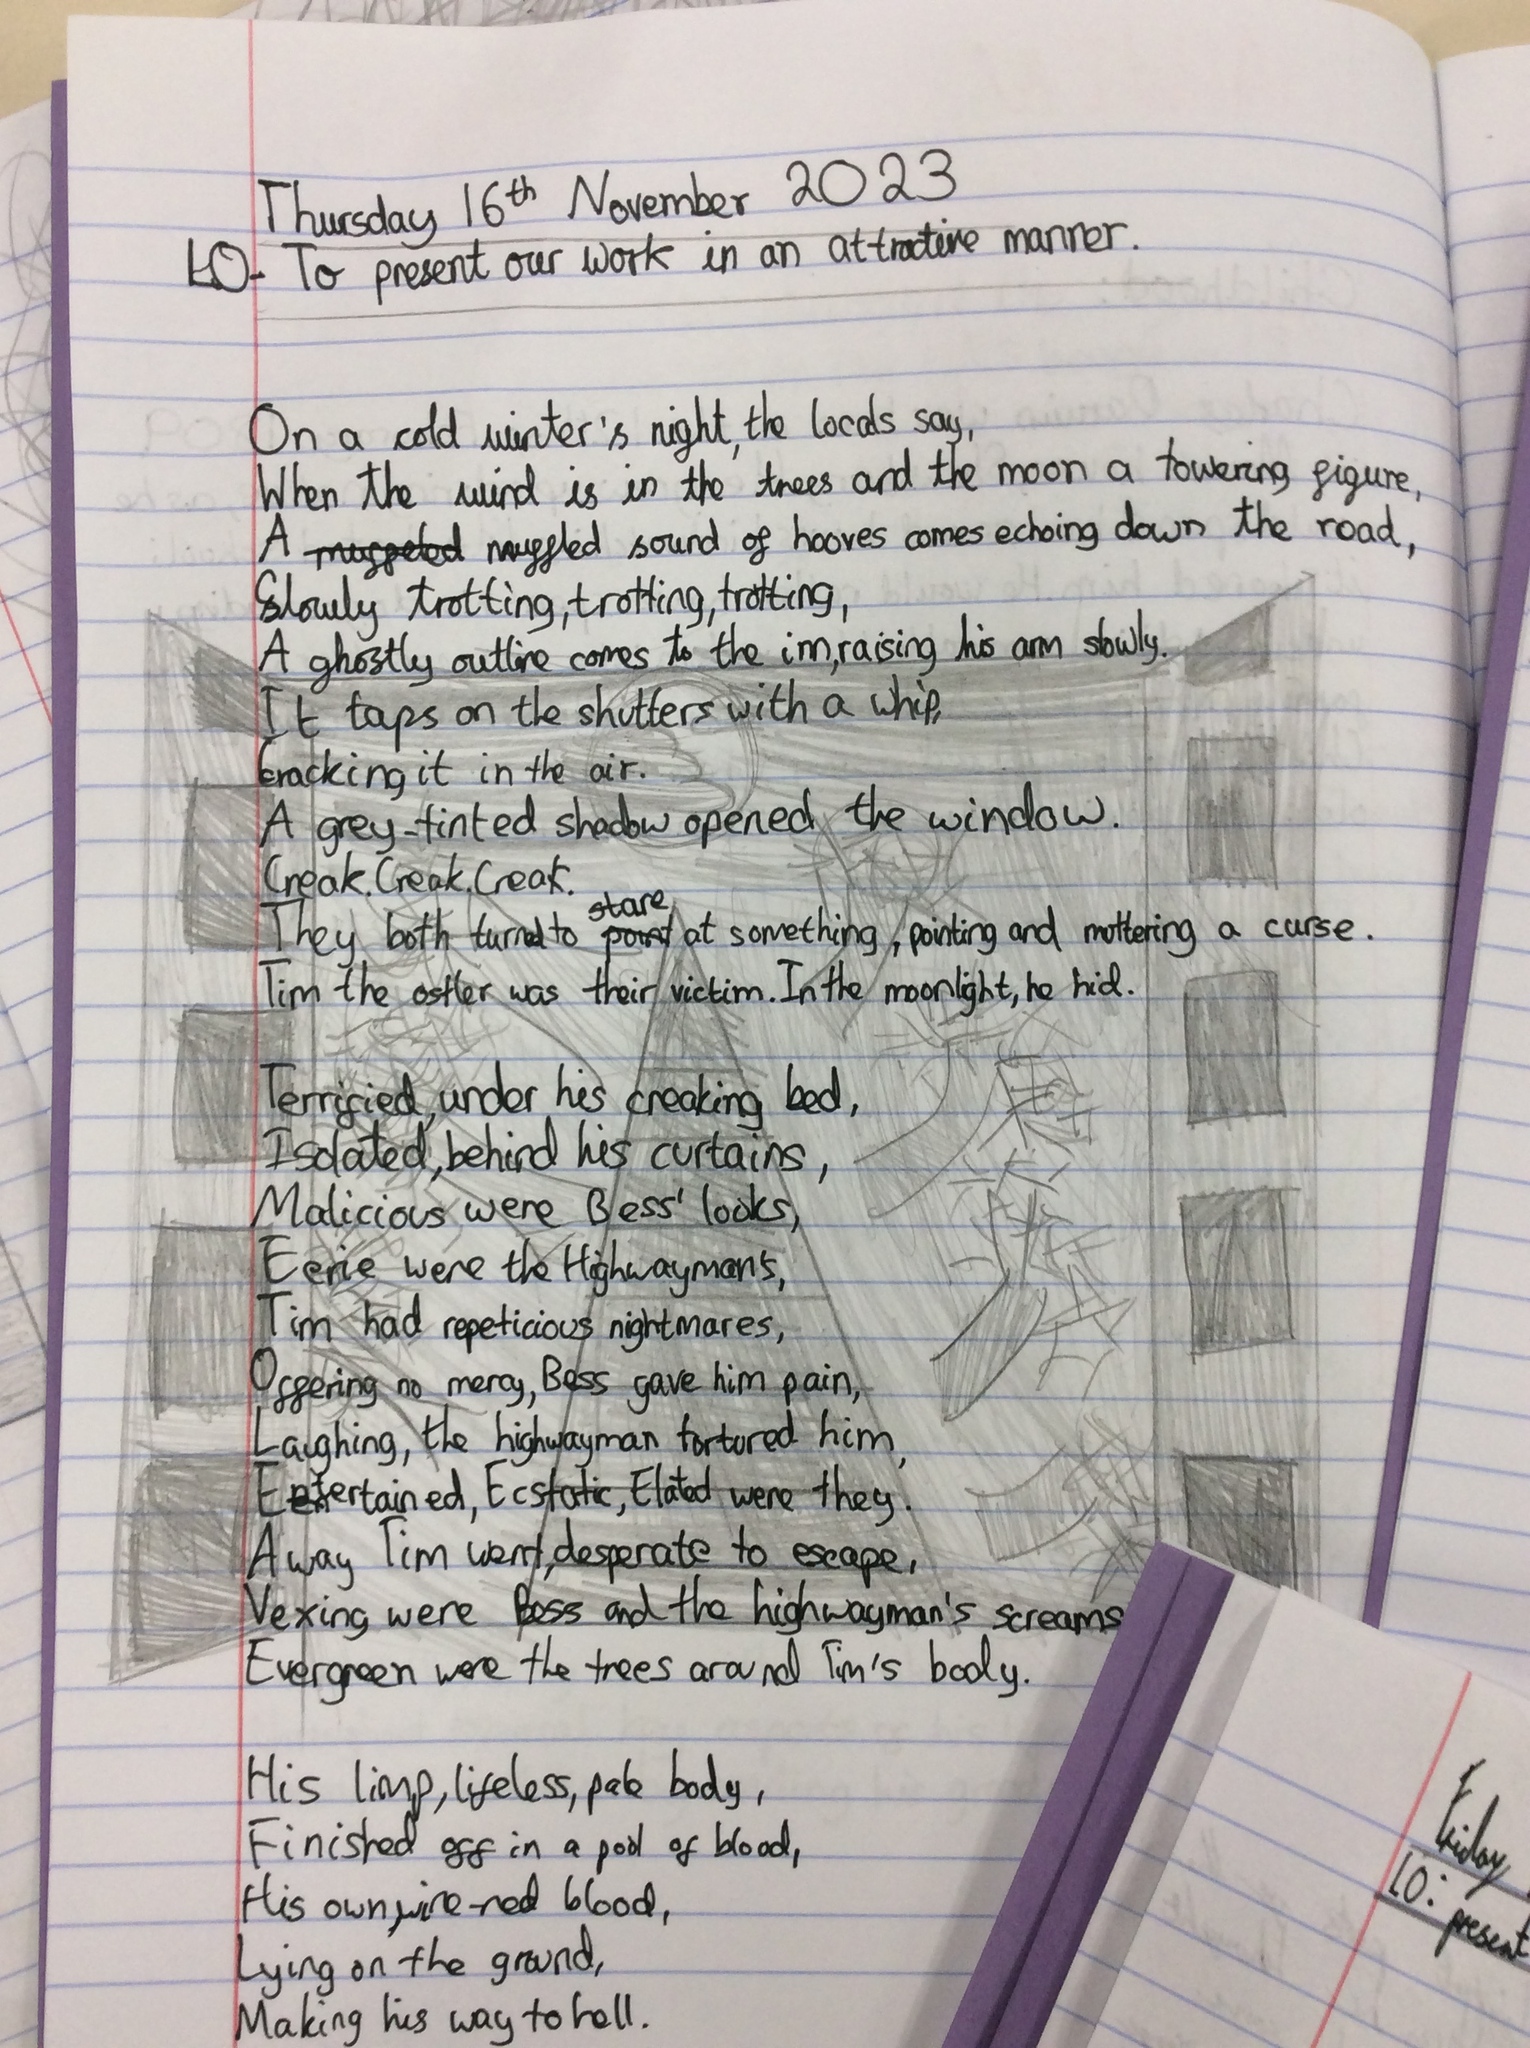 Thursday 16th November 2023
LO- To present our work in an attractive manner.
On a cold winter's night, the locals say,
When the wind is in the trees and the moon a towering figure,
A muffeted muffled sound of hooves comes echoing down the road,
Slowly trotting, trotting, trotting,
A ghostly outline comes to the inn, raising his arm slowly.
It taps on the shutters with a whip,
Cracking it in the air.
A grey-tinted shadow opened the window.
Creak. Creak. Creak.
They both turned to point stare at something, pointing and muttering a curse.
Tim the ostler was their victim. In the moonlight, he hid.
Terrified, under his creaking bed,
Isolated, behind his curtains,
Malicious were Bess' looks,
Eerie were the Highwayman's,
Tim had repeticious nightmares,
Offering no mercy, Bess gave him pain,
Laughing, the highwayman tortured him,
Entertained, Ecstatic, Elated were they.
Away Tim went, desperate to escape,
Vexing were Bess and the highwayman's screams
Evergreen were the trees around Tim's body.
His limp, lifeless, pale body,
Finished off in a pool of blood,
His own, wine-red blood,
Lying on the ground,
Making his way to hell.
Friday
LO:
present